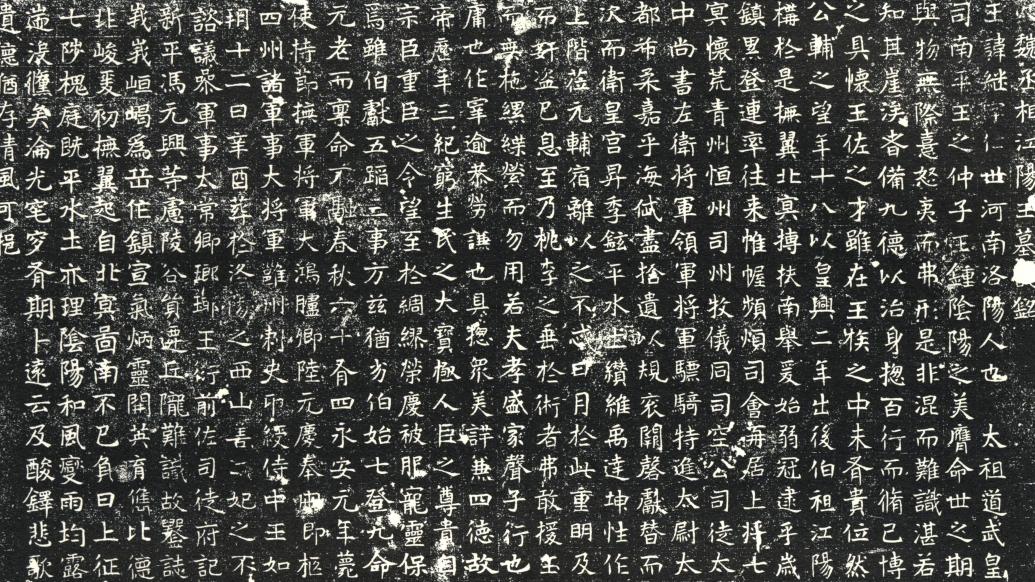 丞相江陽王墓銘
王諱継字仁世河南洛陽人也 太祖道武皇
司南平王之仲子王鍾陰陽之美膺命世之期
與物無際憙怒夷而弗形是非混而難識湛若
知其崖涘者備九德以治身揔百行而脩己博
之具懷王佐之才雖在王族之中未有貴位然
公輔之望年十八以皇興二年出後伯祖江陽
構於是撫翼北冥搏扶南舉爰始弱冠逮乎歲
鎮異登連率往来帷幄頻煩司會再居上将七
冥懷荒青州恒州司州牧儀同司空公司徒太
中尚書左衛将軍領軍将軍驃騎特進太尉太
都布柔嘉乎海盡捨遺以規衮闕磬獻替而
次而衛皇宮昇季鉉平水土纘維禹達坤性作
上階莅元輔宿離以之不忒日月於此重明及
而奸盗已息至乃桃李之垂於術者弗敢援
而無拖縲緤縈而勿用若夫孝盛家聲子行也
庸也作宰逾恭勞謙也具揔衆美詳兼四德故
帝歷年三紀窮生民之大寳極人臣之尊貴
宗臣重臣之令望至於綢繆榮慶被服寵靈保
焉雖伯獻五蹈三事方兹猶劣伯始七登九命
元老而稟命不融春秋六十有四永安元年薨
使持節撫軍将軍大鴻臚卿陸元慶奉即柩
四州諸軍事大将軍雍州刺史印綬侍中王如
月十二日辛酉葬於洛陽之西山善二妃之不
諮議叅軍事太常卿瑯琊王衍前佐司徒府記
新平馮元興等慮陵谷貿遷丘隴難識故鐫誌
峩峩峘崵為岳作鎮宣氣炳靈開英育儁比德
北峻爰初撫翼起自北冥啚南不已負日上征
七陟槐庭既平水土亦理陰陽和風變雨均露
矣淪光窀穸有期卜遠云及酸鐸悲歌
遺德猶存清風可挹